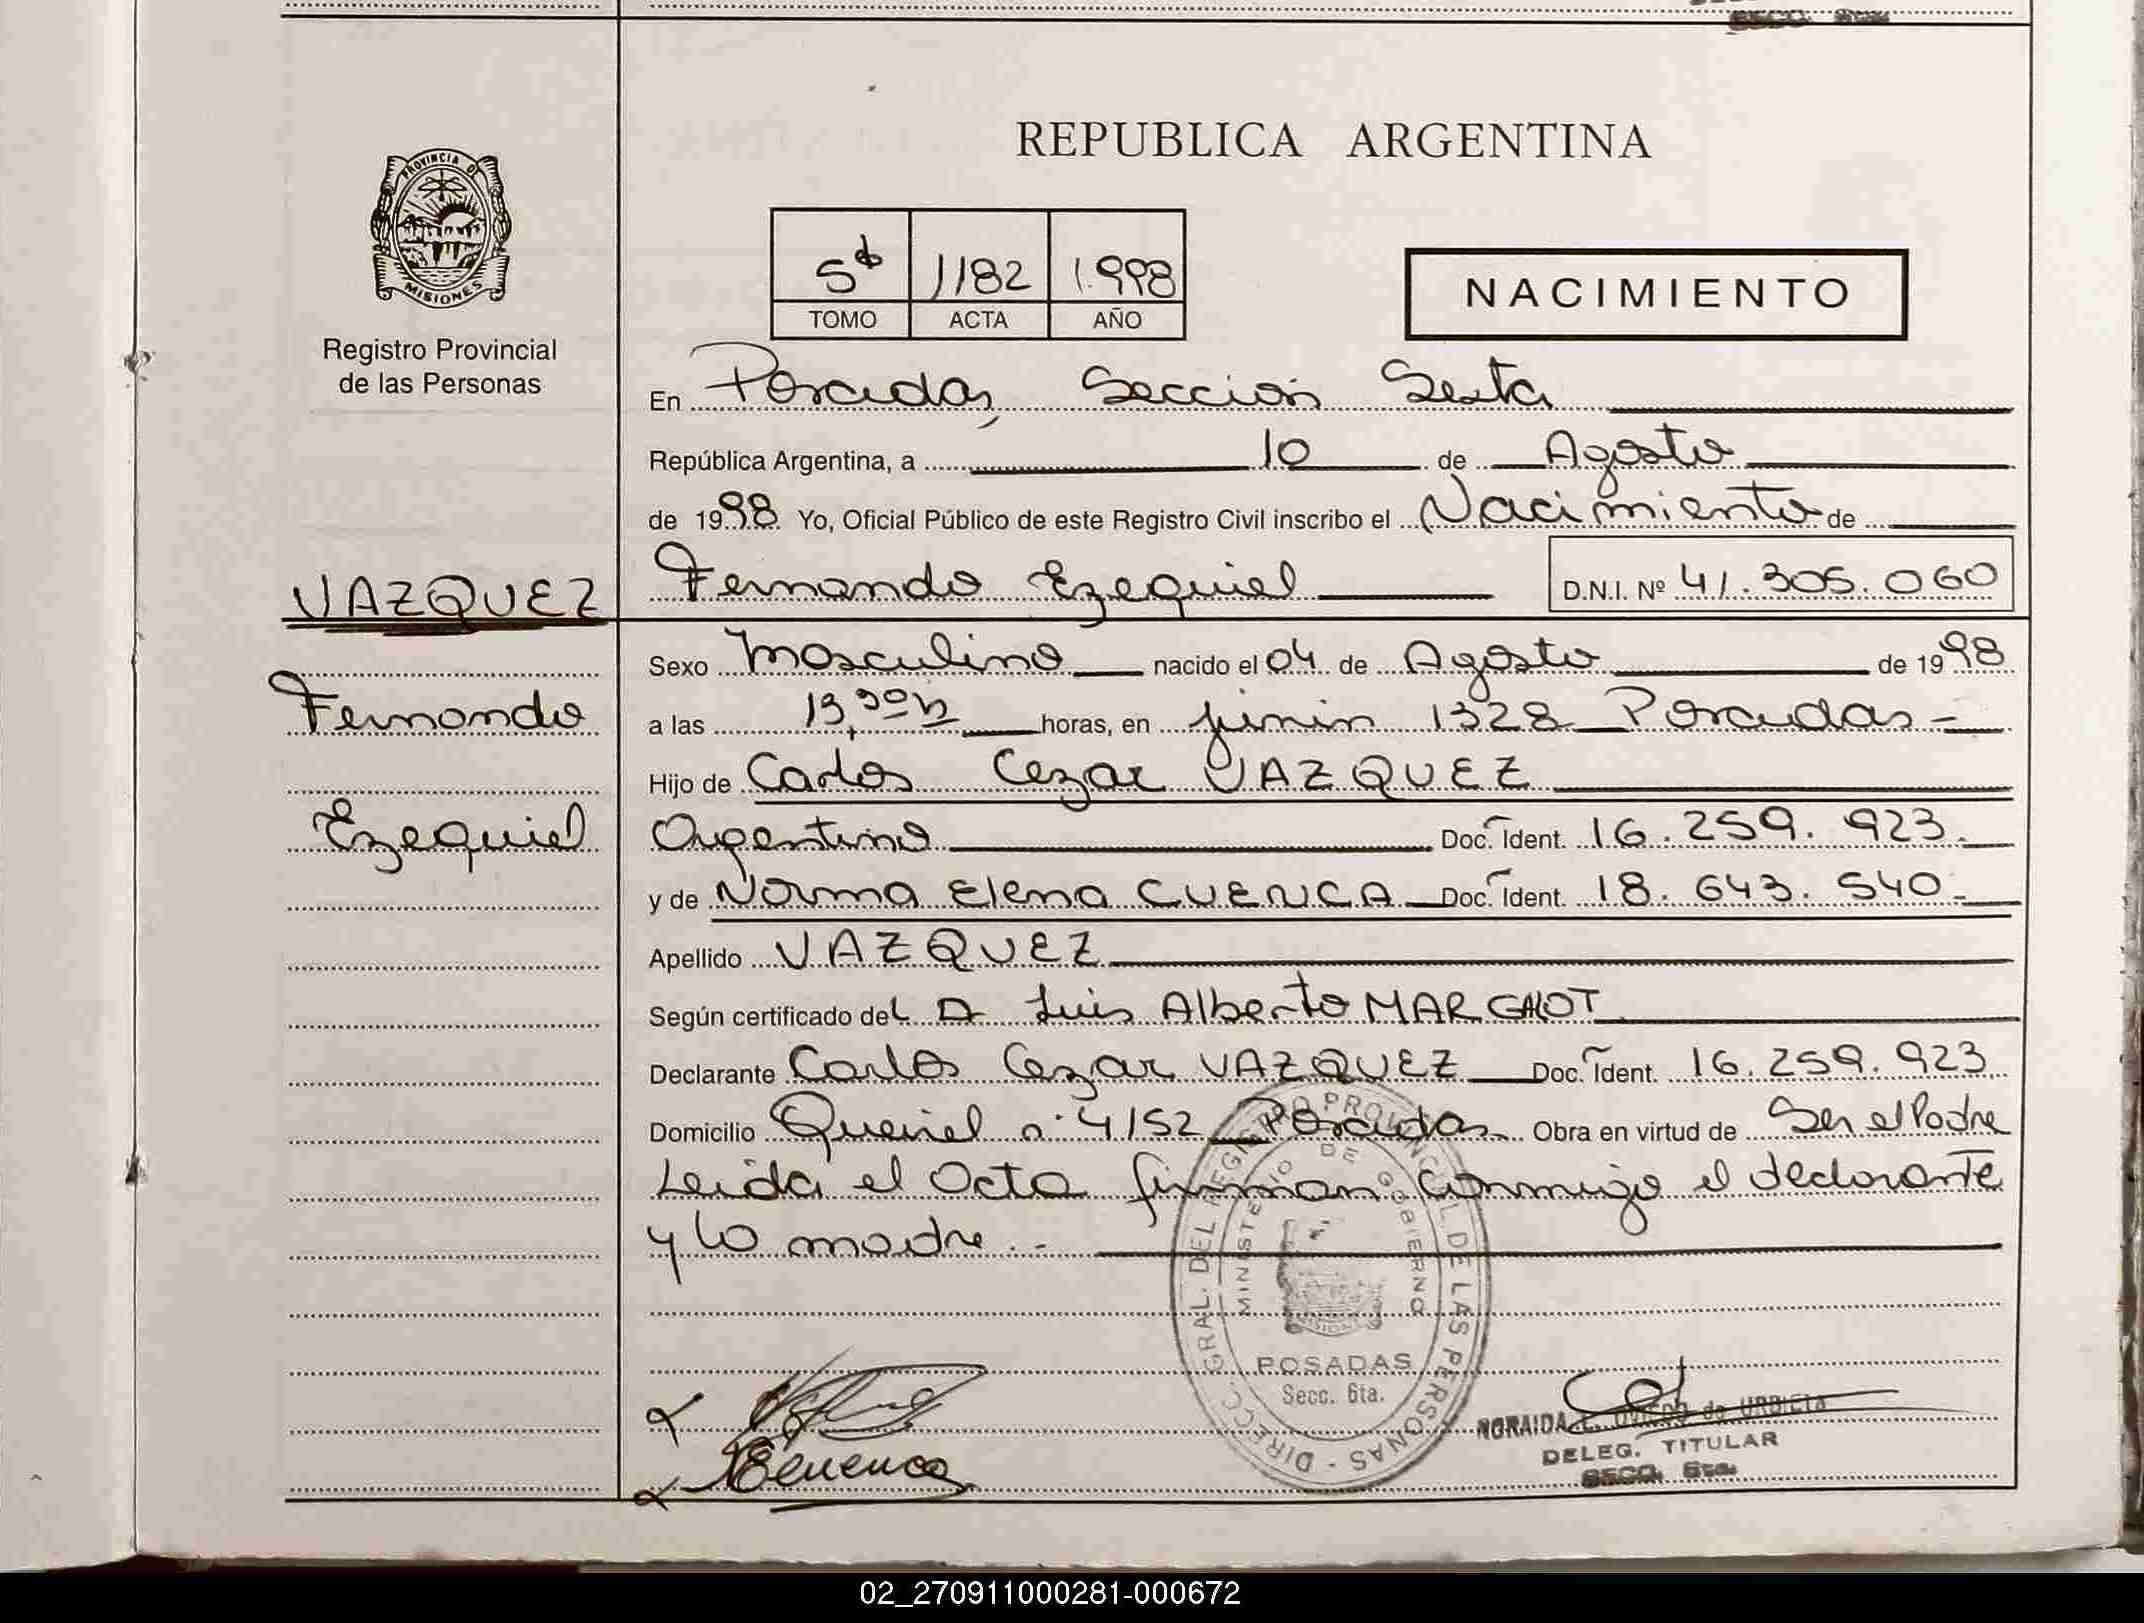 PROVINCIA DE
MISIONES
Registro Provincial
de las Personas
REPUBLICA ARGENTINA
5º 1182 1.998
TOMO ACTA AÑO
NACIMIENTO
En Posadas, Sección Sexta
República Argentina, a 10 de Agosto
de 1998. Yo, Oficial Público de este Registro Civil inscribo el Nacimiento de
VAZQUEZ
Fernando Ezequiel D.N.I. Nº 41.305.060
Sexo Masculino nacido el 04 de Agosto de 1998
Fernando
a las 13,30 h horas, en Junin 1328 Posadas -
Hijo de Carlos Cezar VAZQUEZ
Ezequiel
Argentino Doc. Ident. 16.259.923.
y de Norma Elena CUENCA Doc. Ident. 18.643.540.-
Apellido VAZQUEZ
Según certificado del Dr Luis Alberto MARGALOT
Declarante Carlos Cezar VAZQUEZ Doc. Ident. 16.259.923
Domicilio nº 4152 Posadas Obra en virtud de Ser el Padre
Leida el Acta firman conmigo el declarante
y la madre.-
DIRECC. GRAL. DEL REGISTRO PROVINCIAL DE LAS PERSONAS
MINISTERIO DE GOBIERNO
MISIONES
POSADAS
Secc. 6ta.
NORAIDA OVIEDO de URBIETA
DELEG. TITULAR
SECC. 6ta.
02_270911000281-000672